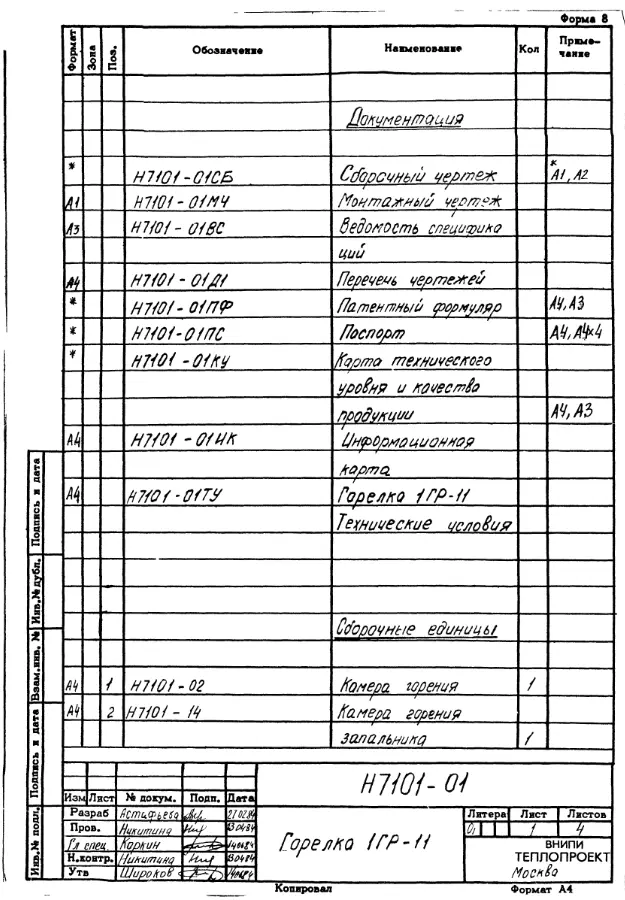 Форма 8
Формат Зона Поз. Обозначение Наименование Кол Приме-
чание
Документация
* Н7101-01СБ Сборочный чертеж * А1, А2
А1 Н7101-01МЧ Монтажный чертеж
А3 Н7101-01ВС Ведомость специфика
ций
А4 Н7101-01Д1 Перечень чертежей
* Н7101-01ПФ Патентный формуляр А4, А3
* Н7101-01ПС Паспорт А4, А4х4
* Н7101-01КУ Карта технического
уровня и качества
продукции А4, А3
А4 Н7101-01ИК Информационная
карта
А4 Н7101-01ТУ Горелка 1ГР-11
Технические условия
Сборочные единицы
А4 1 Н7101-02 Камера горения 1
А4 2 Н7101-14 Камера горения
запальника 1
Подпись и дата
Инв.№ дубл.
Взам.инв. №
Подпись и дата
Инв.№ подл.
Н7101-01
Изм Лист № докум. Подп. Дата
Разраб Астафьева
Пров. Никитина
Гл спец. Коркин
Н.контр. Никитина
Утв Широков
Горелка 1ГР-11
Литера Лист Листов
1 4
ВНИПИ
ТЕПЛОПРОЕКТ
Москва
Копировал Формат А4